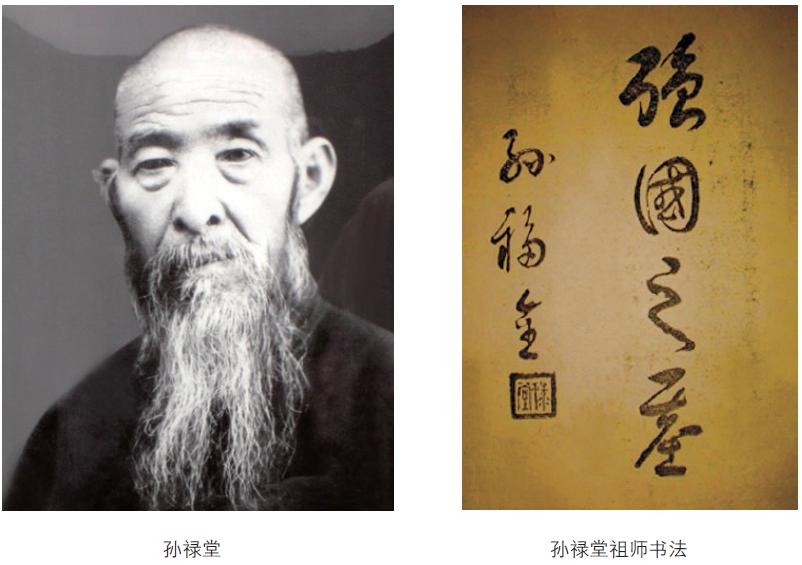 強國之基
孫福全
祿堂
孙禄堂
孙禄堂祖师书法